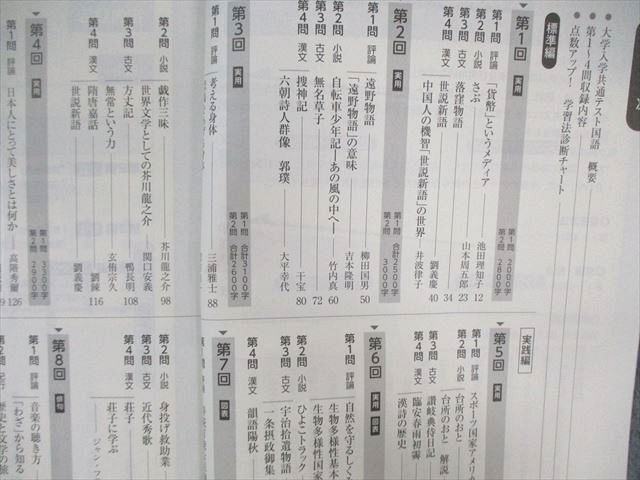 大学入学共通テスト国語 概要
第1〜4問収録内容
点数アップ! 学習法診断チャート
標準編
第1回 実用 第1問 2000字 第2問 2800字
第1問 評論 「貨幣」というメディア 池田理知子 12
第2問 小説 さぶ 山本周五郎 23
第3問 古文 落窪物語 34
第4問 漢文 世説新語 劉義慶 40
中国人の機智『世説新語』の世界 井波律子
第2回 実用 第1問 合計2500字 第2問 3000字
第1問 評論 遠野物語 柳田国男 50
「遠野物語」の意味 吉本隆明
第2問 小説 自転車少年記―あの風の中へ 竹内真 60
第3問 古文 無名草子 72
第4問 漢文 捜神記 干宝 80
六朝詩人群像 郭璞 大平幸代
第3回 実用 第1問 合計3100字 第2問 合計2600字
第1問 評論 考える身体 三浦雅士 88
第2問 小説 戯作三昧 芥川龍之介 98
世界文学としての芥川龍之介 関口安義
第3問 古文 方丈記 鴨長明 108
無常という力 玄侑宗久
第4問 漢文 隋唐嘉話 劉餗 116
世説新語 劉義慶
第4回 実用 第1問 3300字 第2問 2900字
第1問 評論 日本人にとって美しさとは何か 高階秀爾 126
実践編
第5回 実用
第1問 評論 スポーツ国家アメリカ
第2問 小説 台所のおと
台所のおと 解説
第3問 古文 讃岐典侍日記
第4問 漢文 臨安春雨初霽
漢詩の歴史
第6回 実用 図表
第1問 評論 自然を守るしく
生物多様性基本
生物多様性国家
第2問 小説 ひよこトラック
第3問 古文 宇治拾遺物語
一条摂政御集
第4問 漢文 韻語陽秋
第7回 図表
第2問 小説 身投げ救助業
第3問 古文 近代秀歌
第4問 漢文 荘子
荘子に学ぶ
ジャン・フ
第8回 俳句
第1問 評論 音楽の聴き方
「わざ」から知る